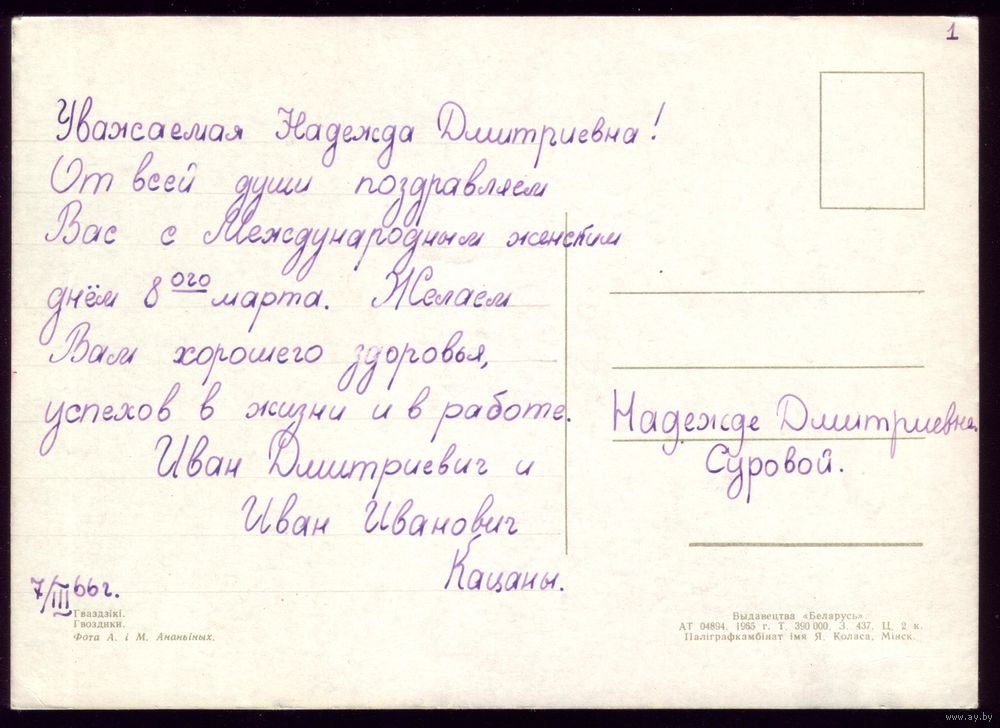 1
Уважаемая Надежда Дмитриевна!
От всей души поздравляем
Вас с Международным женским
днём 8ого марта. Желаем
Вам хорошего здоровья,
успехов в жизни и в работе.
Иван Дмитриевич и
Иван Иванович
Кацаны.
7/III 66г.
Гваздзікі.
Гвоздики.
Фота А. і М. Ананьіных.
Надежде Дмитриевне
Суровой.
Выдавецтва «Беларусь»
АТ 04894. 1965 г. Т. 390 000. З. 437. Ц. 2 к.
Паліграфкамбінат імя Я. Коласа, Мінск.
www.ay.by